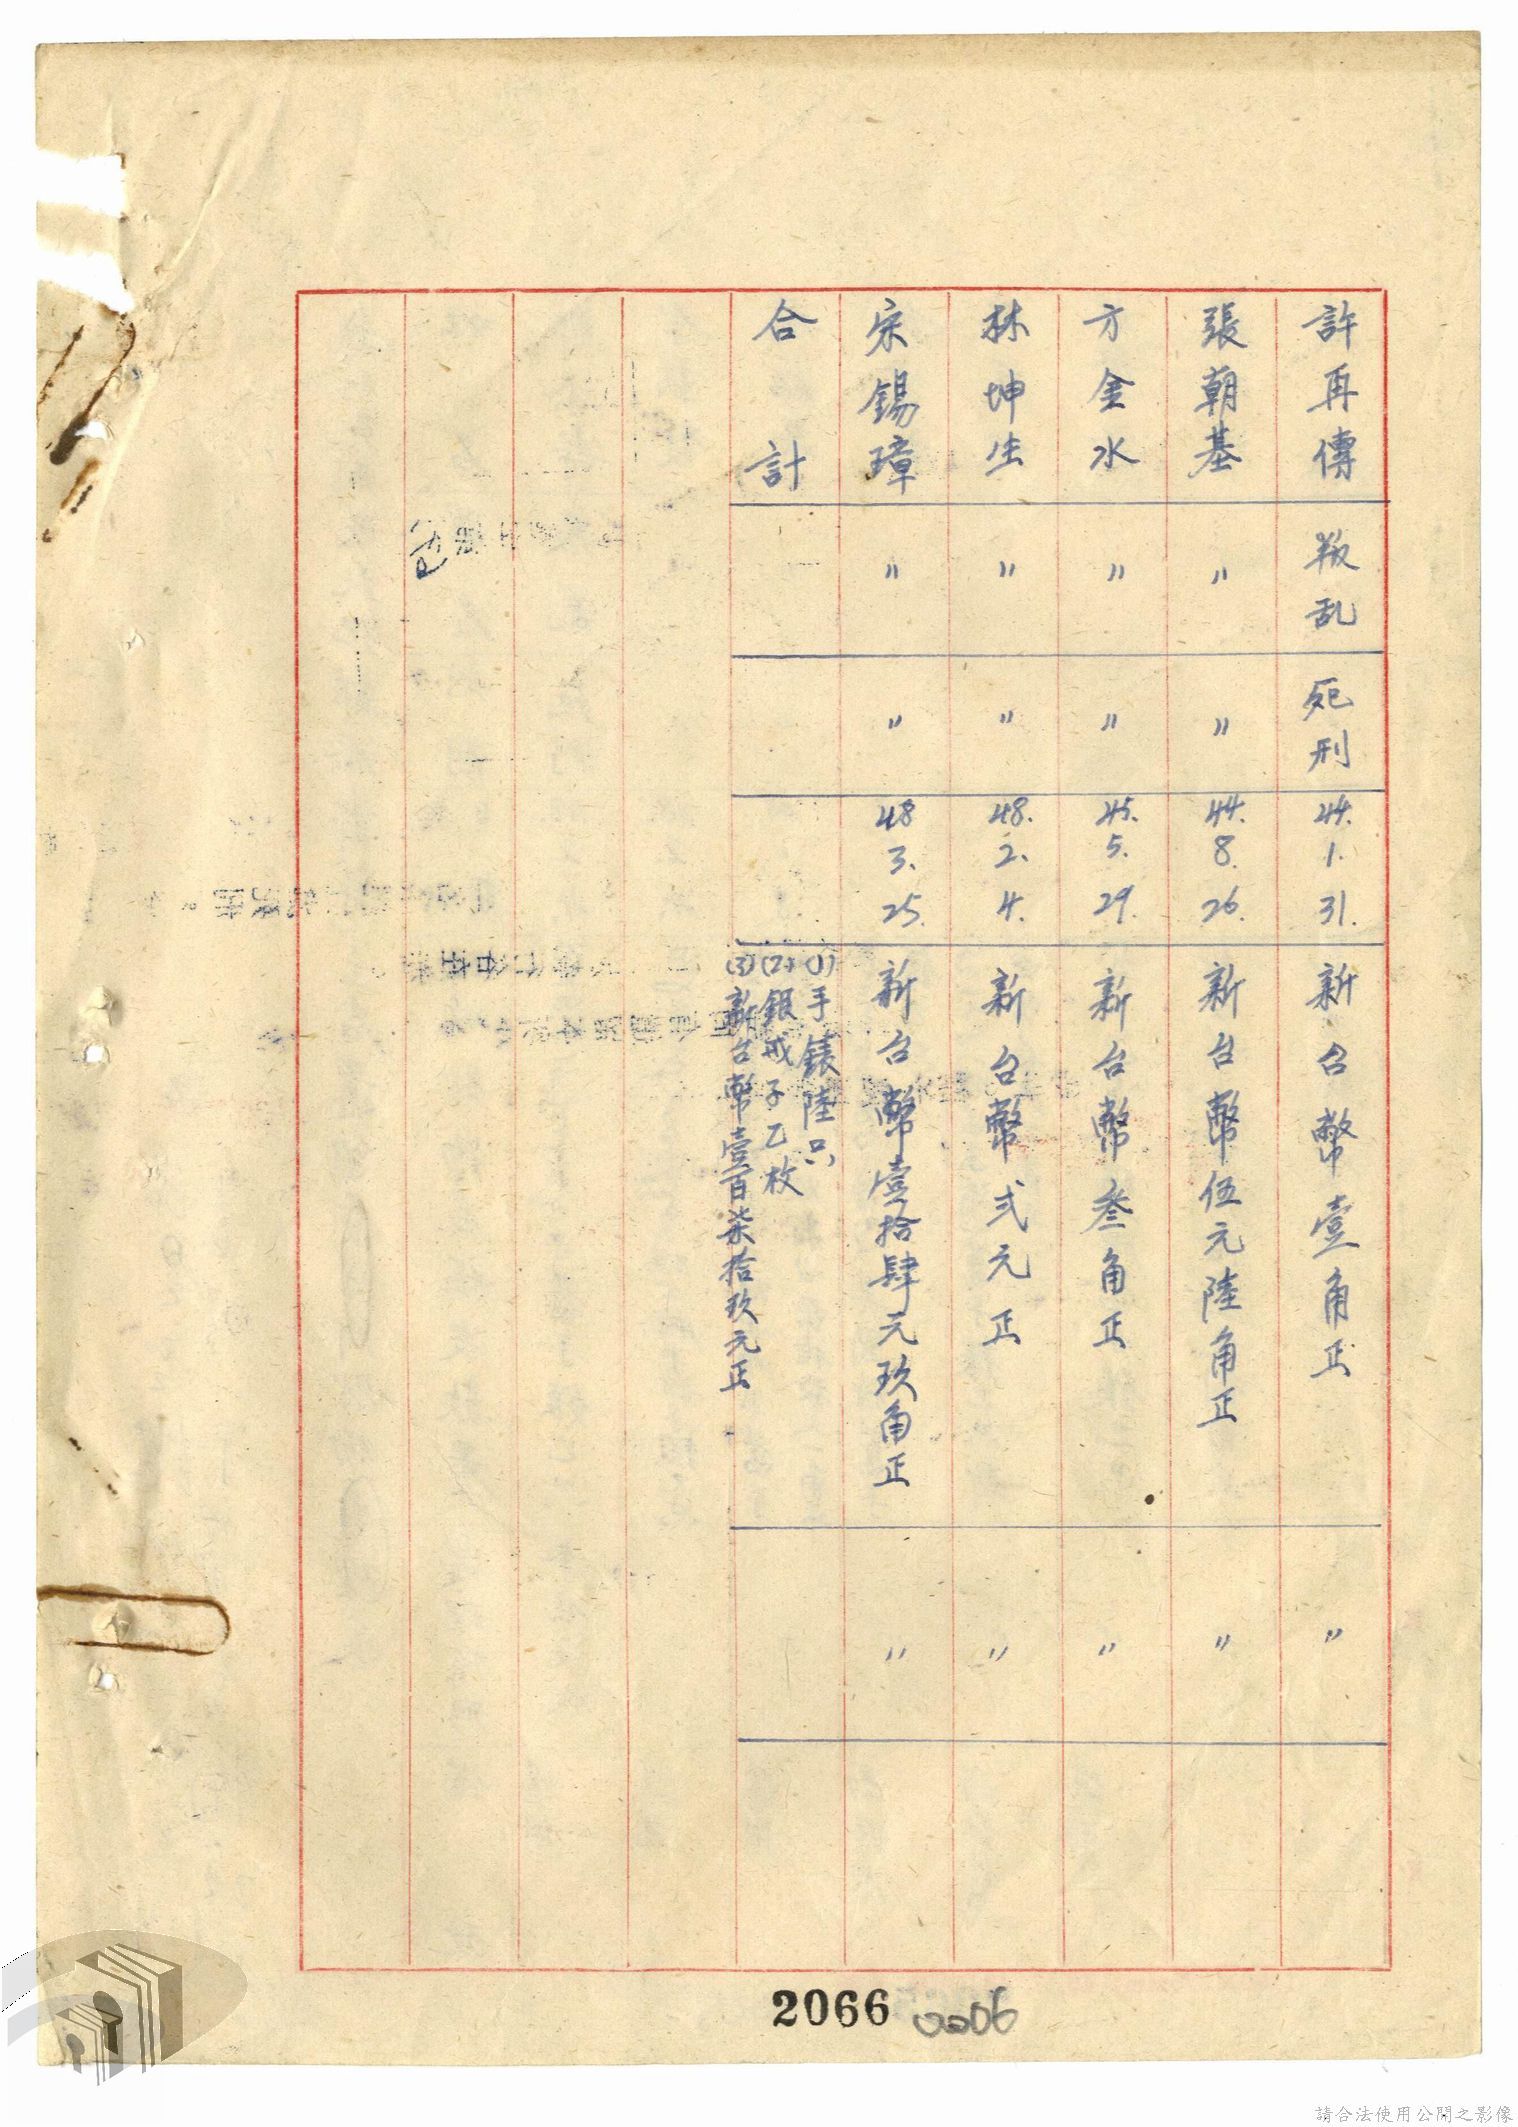 許再傳 叛乱 死刑 44.1.31. 新台幣壹角正 〃
張朝基 〃 〃 44.8.26. 新台幣伍元陸角正 〃
方金水 〃 〃 45.5.29. 新台幣叁角正 〃
林坤生 〃 〃 48.2.4. 新台幣弍元正 〃
宋錫璋 〃 〃 48 3.25. 新台幣壹拾肆元玖角正 〃
合計
(1)手錶陸只
(2)銀戒子乙枚
(3)新台幣壹百柒拾玖元正
2066
0006
請合法使用公開之影像